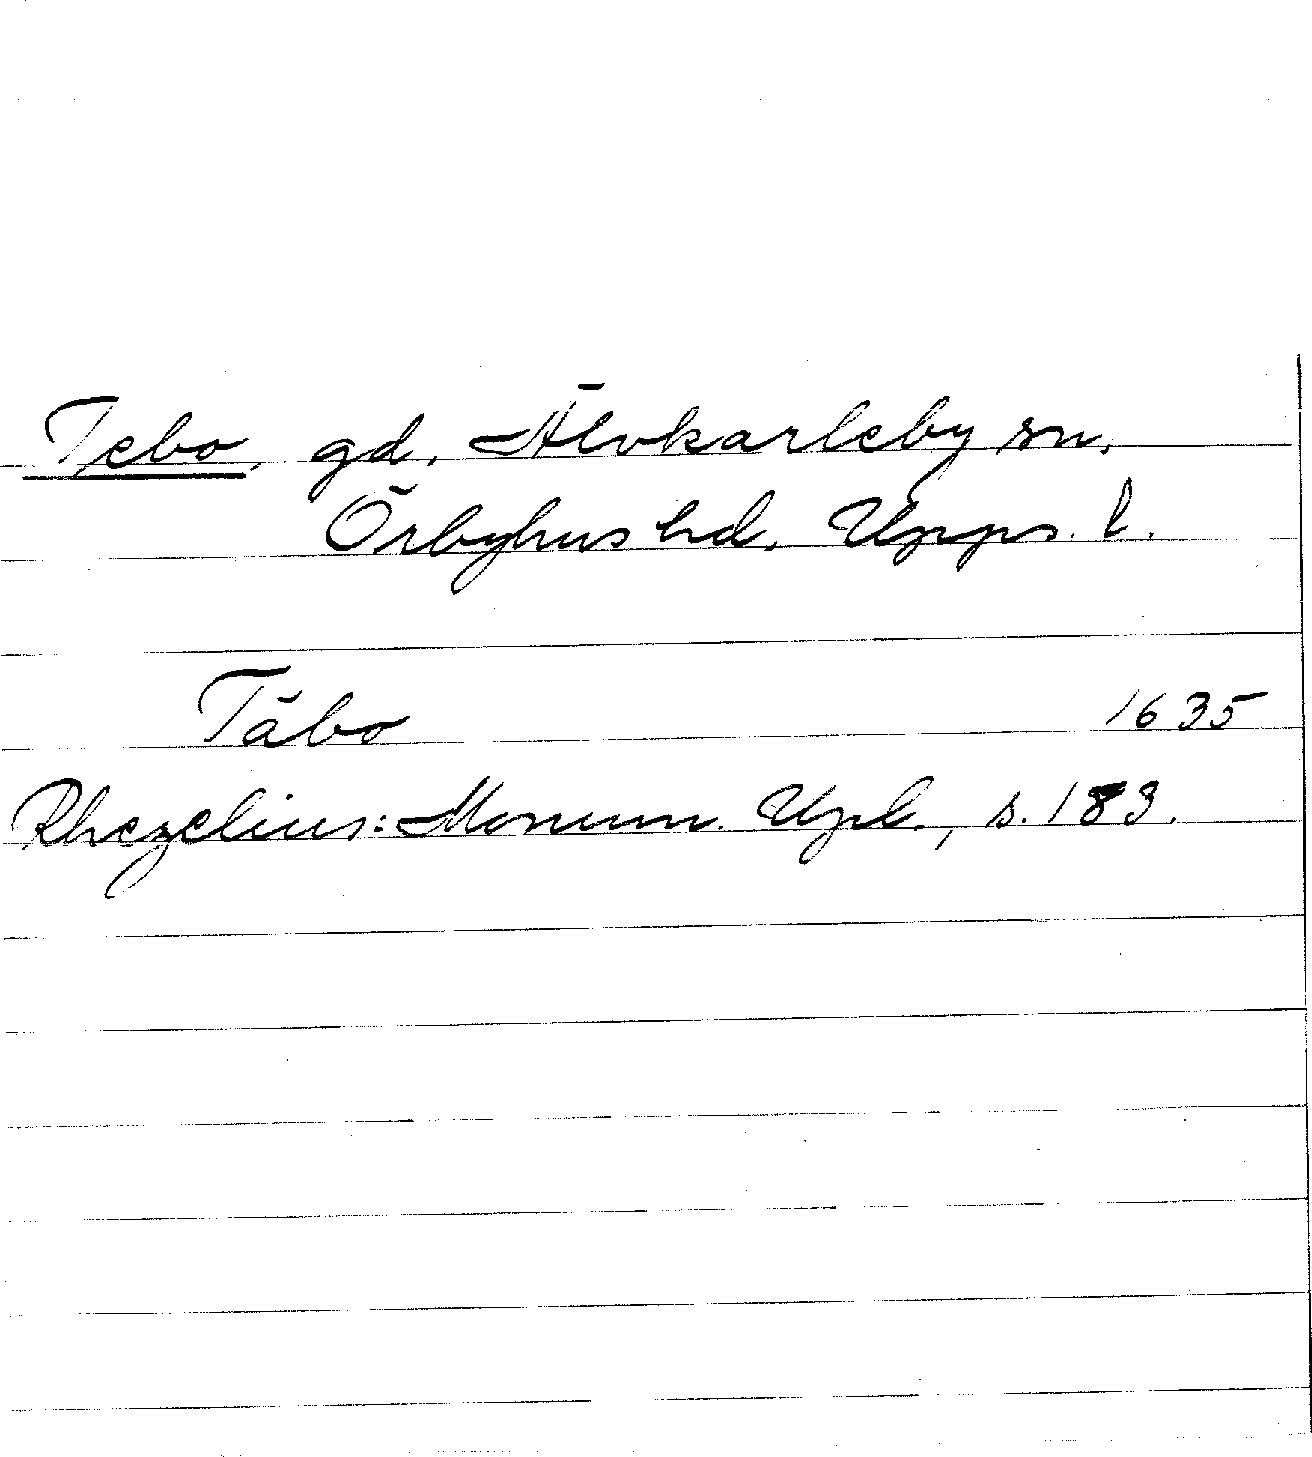 Tebo, gd, Älvkarleby sn,
Örbyhus hd, Upps. l.
Täbo 1635
Rhezelius: Monum. Upl., s. 183.